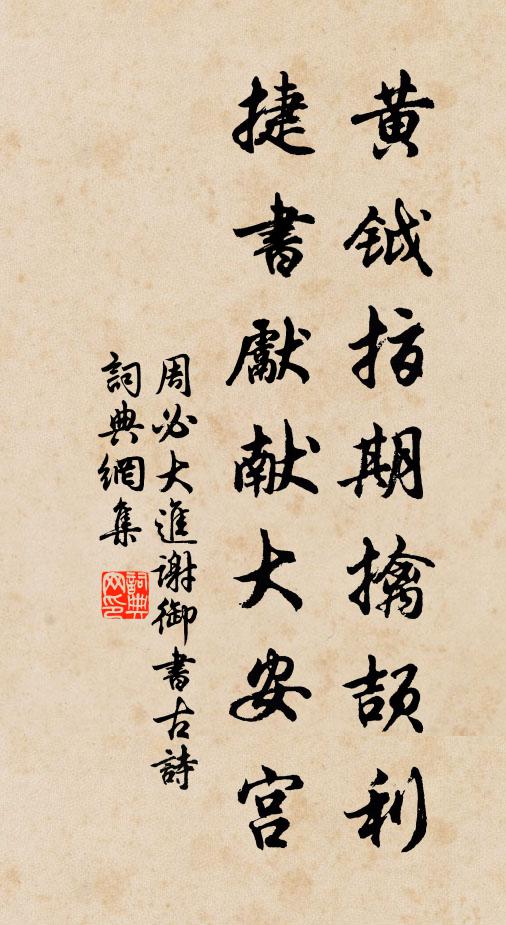 黄鉞指期擒頡利
捷書獻献大安宫
周必大進謝御書古詩
詞典網集
詞典网印